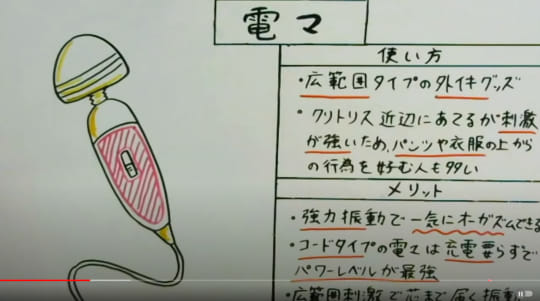 電マ
使い方
・広範囲タイプの外イキグッズ
・クリトリス近辺にあてるが刺激
が強いため、パンツや衣服の上から
の行為を好む人も多い
メリット
・強力振動で一気にオーガズムできる
・コードタイプの電マは充電要らずで
パワーレベルが最強
・広範囲刺激で芯まで届く振動